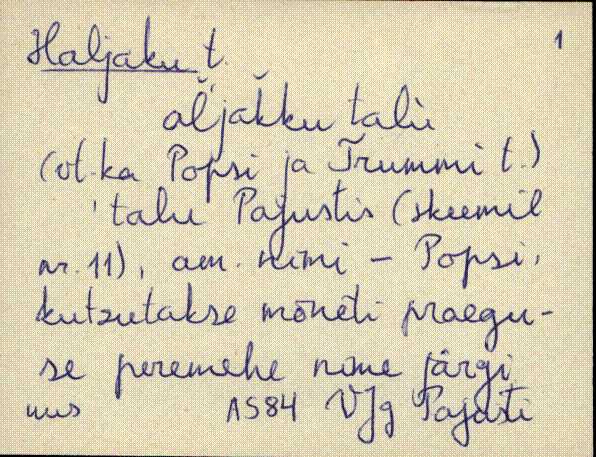 Haljaku t. 1
aľjaǩku taĺu
(vt. ka Popsi ja Trummi t.)
'talu Pajustis (skeemil
nr. 11), am. nimi - Popsi,
kutsutakse mõneti praegu-
se peremehe nime järgi
mus AS84 VJg Pajusti